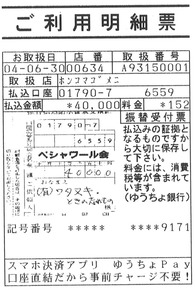 ご利用明細票
お取扱日 店番 取扱番号
04-06-30 00634 A93150001
取扱店 ホンコマゴメニ
払込口座 01790-7 6559
払込金額 *40,000 料金 *152
振替受付票
払込みの証拠
となるものですか
ら大切に保存し
て下さい。
料金には、消費
税等が含まれて
います。
(ゆうちょ銀行)
01790-7
6559
ペシャワール会
40000
記号番号 ***** ****9171
スマホ決済アプリ ゆうちょPay
口座直結だから事前チャージ不要!